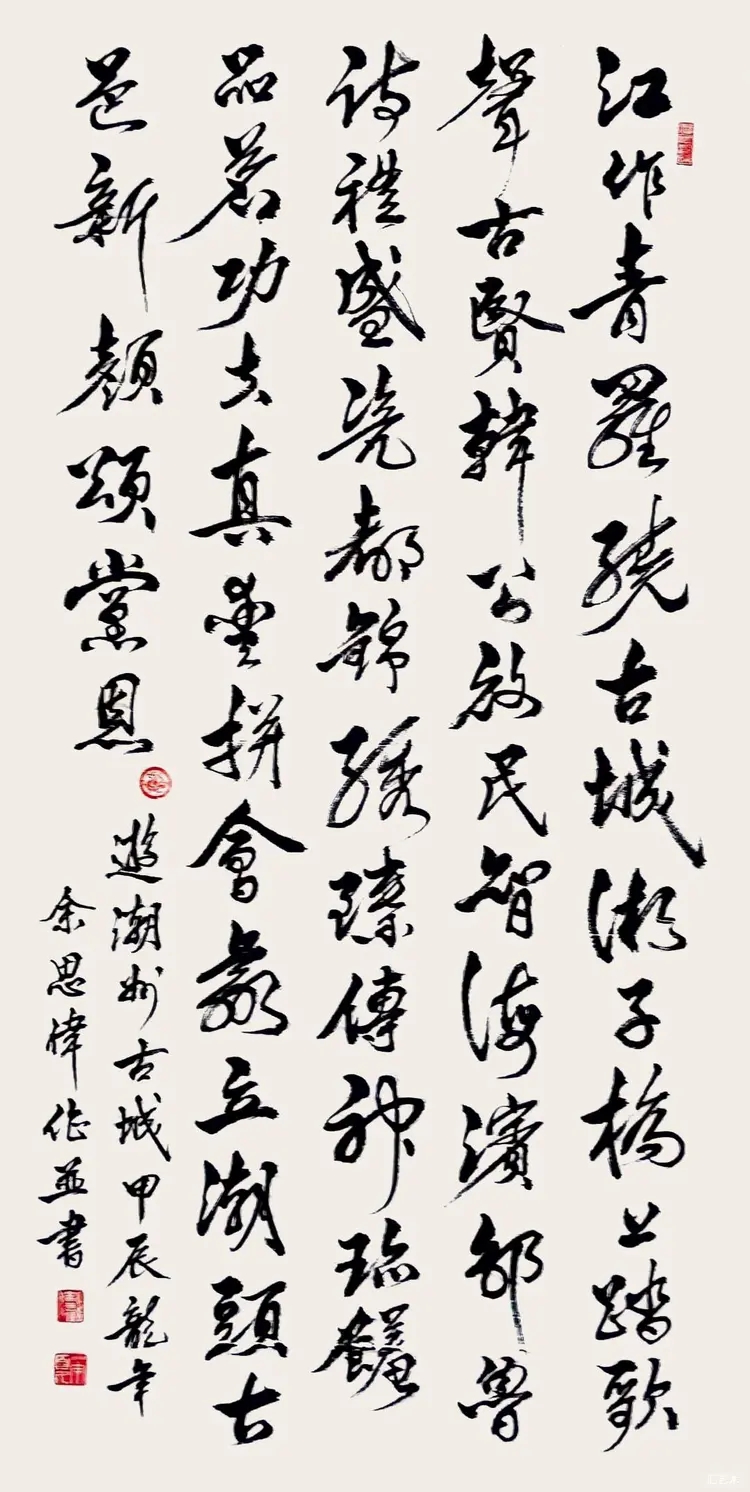 江作青羅繞古城湘子橋上踏歌
聲古賢韓公啟民智海濱鄒魯
詩禮盛瓷都錦繡臻傳神珍饈
品茗功夫真愛拼會贏立潮頭古
邑新顏頌黨恩
遊潮州古城甲辰龍年
余思偉作並書